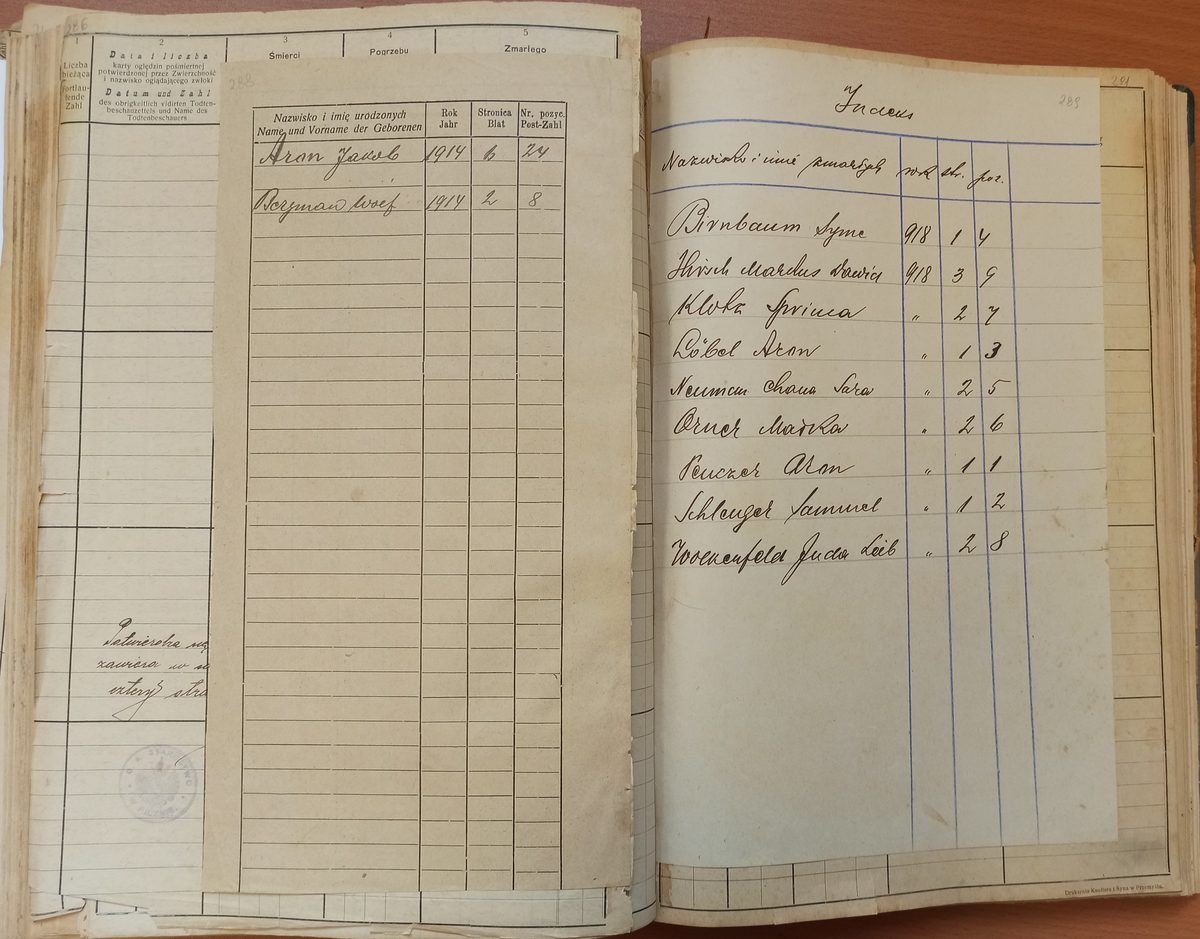 286
1
2
3
4
5
Liczba
bieżąca
Fortlau-
fende
Zahl
Data i liczba
karty oględzin pośmiertnej
potwierdzonej przez Zwierzchność
i nazwisko oglądającego zwłoki
Datum und Zahl
des obrigkeitlich vidirten Todten-
beschauzettels und Name des
Todtenbeschauers
Śmierci
Pogrzebu
Zmarłego
Nazwisko i imię urodzonych
Name und Vorname der Geborenen
Rok
Jahr
Stronica
Blat
Nr. pozyc.
Post-Zahl
Aron Jakob 1914 6 24
Bergman Wolf 1914 2 8
zawiera w
cztery stro
291
289
Indeks
Nazwisko i imię zmarłych rok str. poz.
Birnbaum Syme 918 1 4
Hirsch Markus Dawid 918 3 9
Klotz Sprinca " 2 7
Löbel Aron " 1 3
Neuman Chana Sara " 2 5
Orner Maśka " 2 6
Penczer Aron " 1 1
Schlenger Sammel " 1 2
Wolkenfeld Juda Leib " 2 8
Drukarnia Knollera i Syna w Przemyślu.